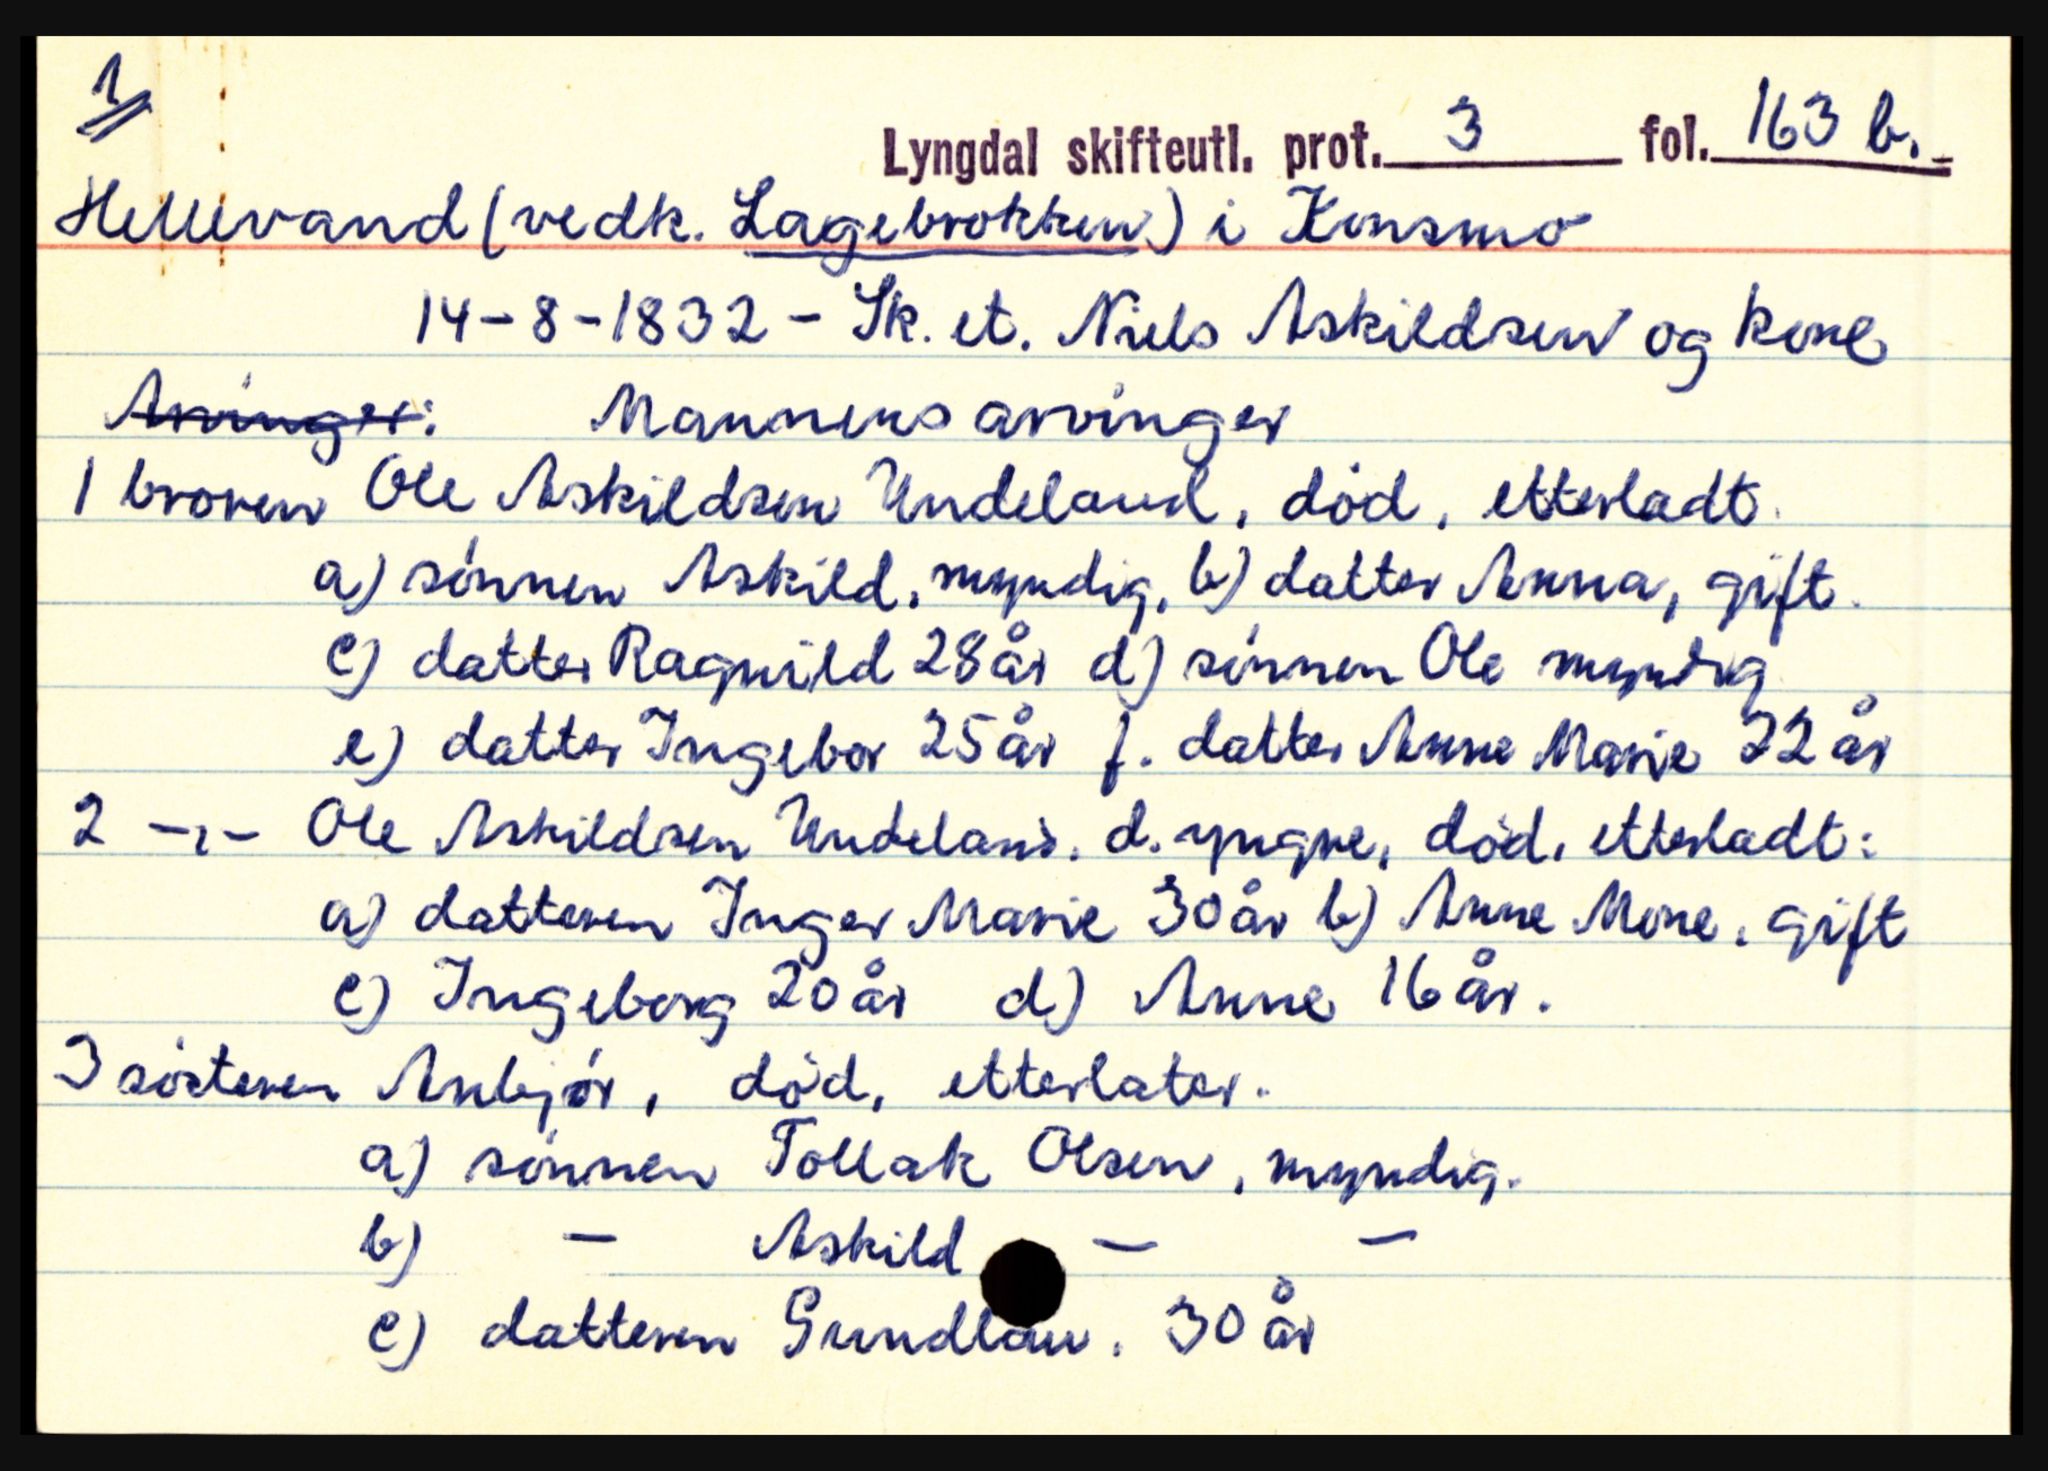 1
Lyngdal skifteutl. prot. 3 fol. 163 b.
Hellevand (vedk. Lagebrokken) i Konsmo
14-8-1832 - Sk. et. Niels Askildsen og kone
Arvinger: Mannens arvinger
1 broren Ole Askildsen Undeland, død, etterladt.
a) sønnen Askild, myndig, b) datter Anna, gift.
c) datter Ragnild 28 år d) sønnen Ole myndig
e) datter Ingebor 25 år f. datter Anne Marie 22 år
2 -,- Ole Askildsen Undeland. d. yngre, død, etterladt:
a) datteren Inger Marie 30 år b) Anne Mone, gift
c) Ingeborg 20 år d) Anne 16 år.
3 søsteren Anbjør, død, etterlater.
a) sønnen Tollak Olsen, myndig.
b) - Askild - -
c) datteren Gundlau. 30 år